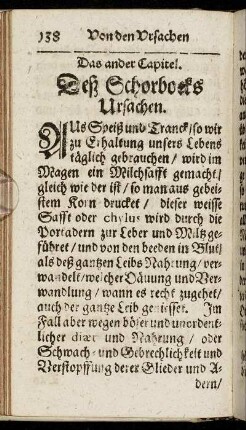 138 Von den Vrsachen
Das ander Capitel.
Deß Schorbocks
Ursachen.
AUs Speiß und Tranck / so wir
zu Erhaltung unsers Lebens
täglich gebrauchen / wird im
Magen ein Milchsafft gemacht /
gleich wie der ist / so man aus gebeis-
stem Korn drucket / dieser weisse
Safft oder chylus wird durch die
Portadern zur Leber und Miltz ge-
führet / und von den beeden in Blut /
als deß gantzen Leibs Nahrung / ver-
wandelt / welcher Däuung und Ver-
wandlung / wann es recht zugehet /
auch der gantze Leib geniesset. Im
Fall aber wegen böser und unordent-
licher diæt und Nahrung / oder
Schwach- und Gebrechligkeit und
Verstopffung derer Glieder und A-
dern /